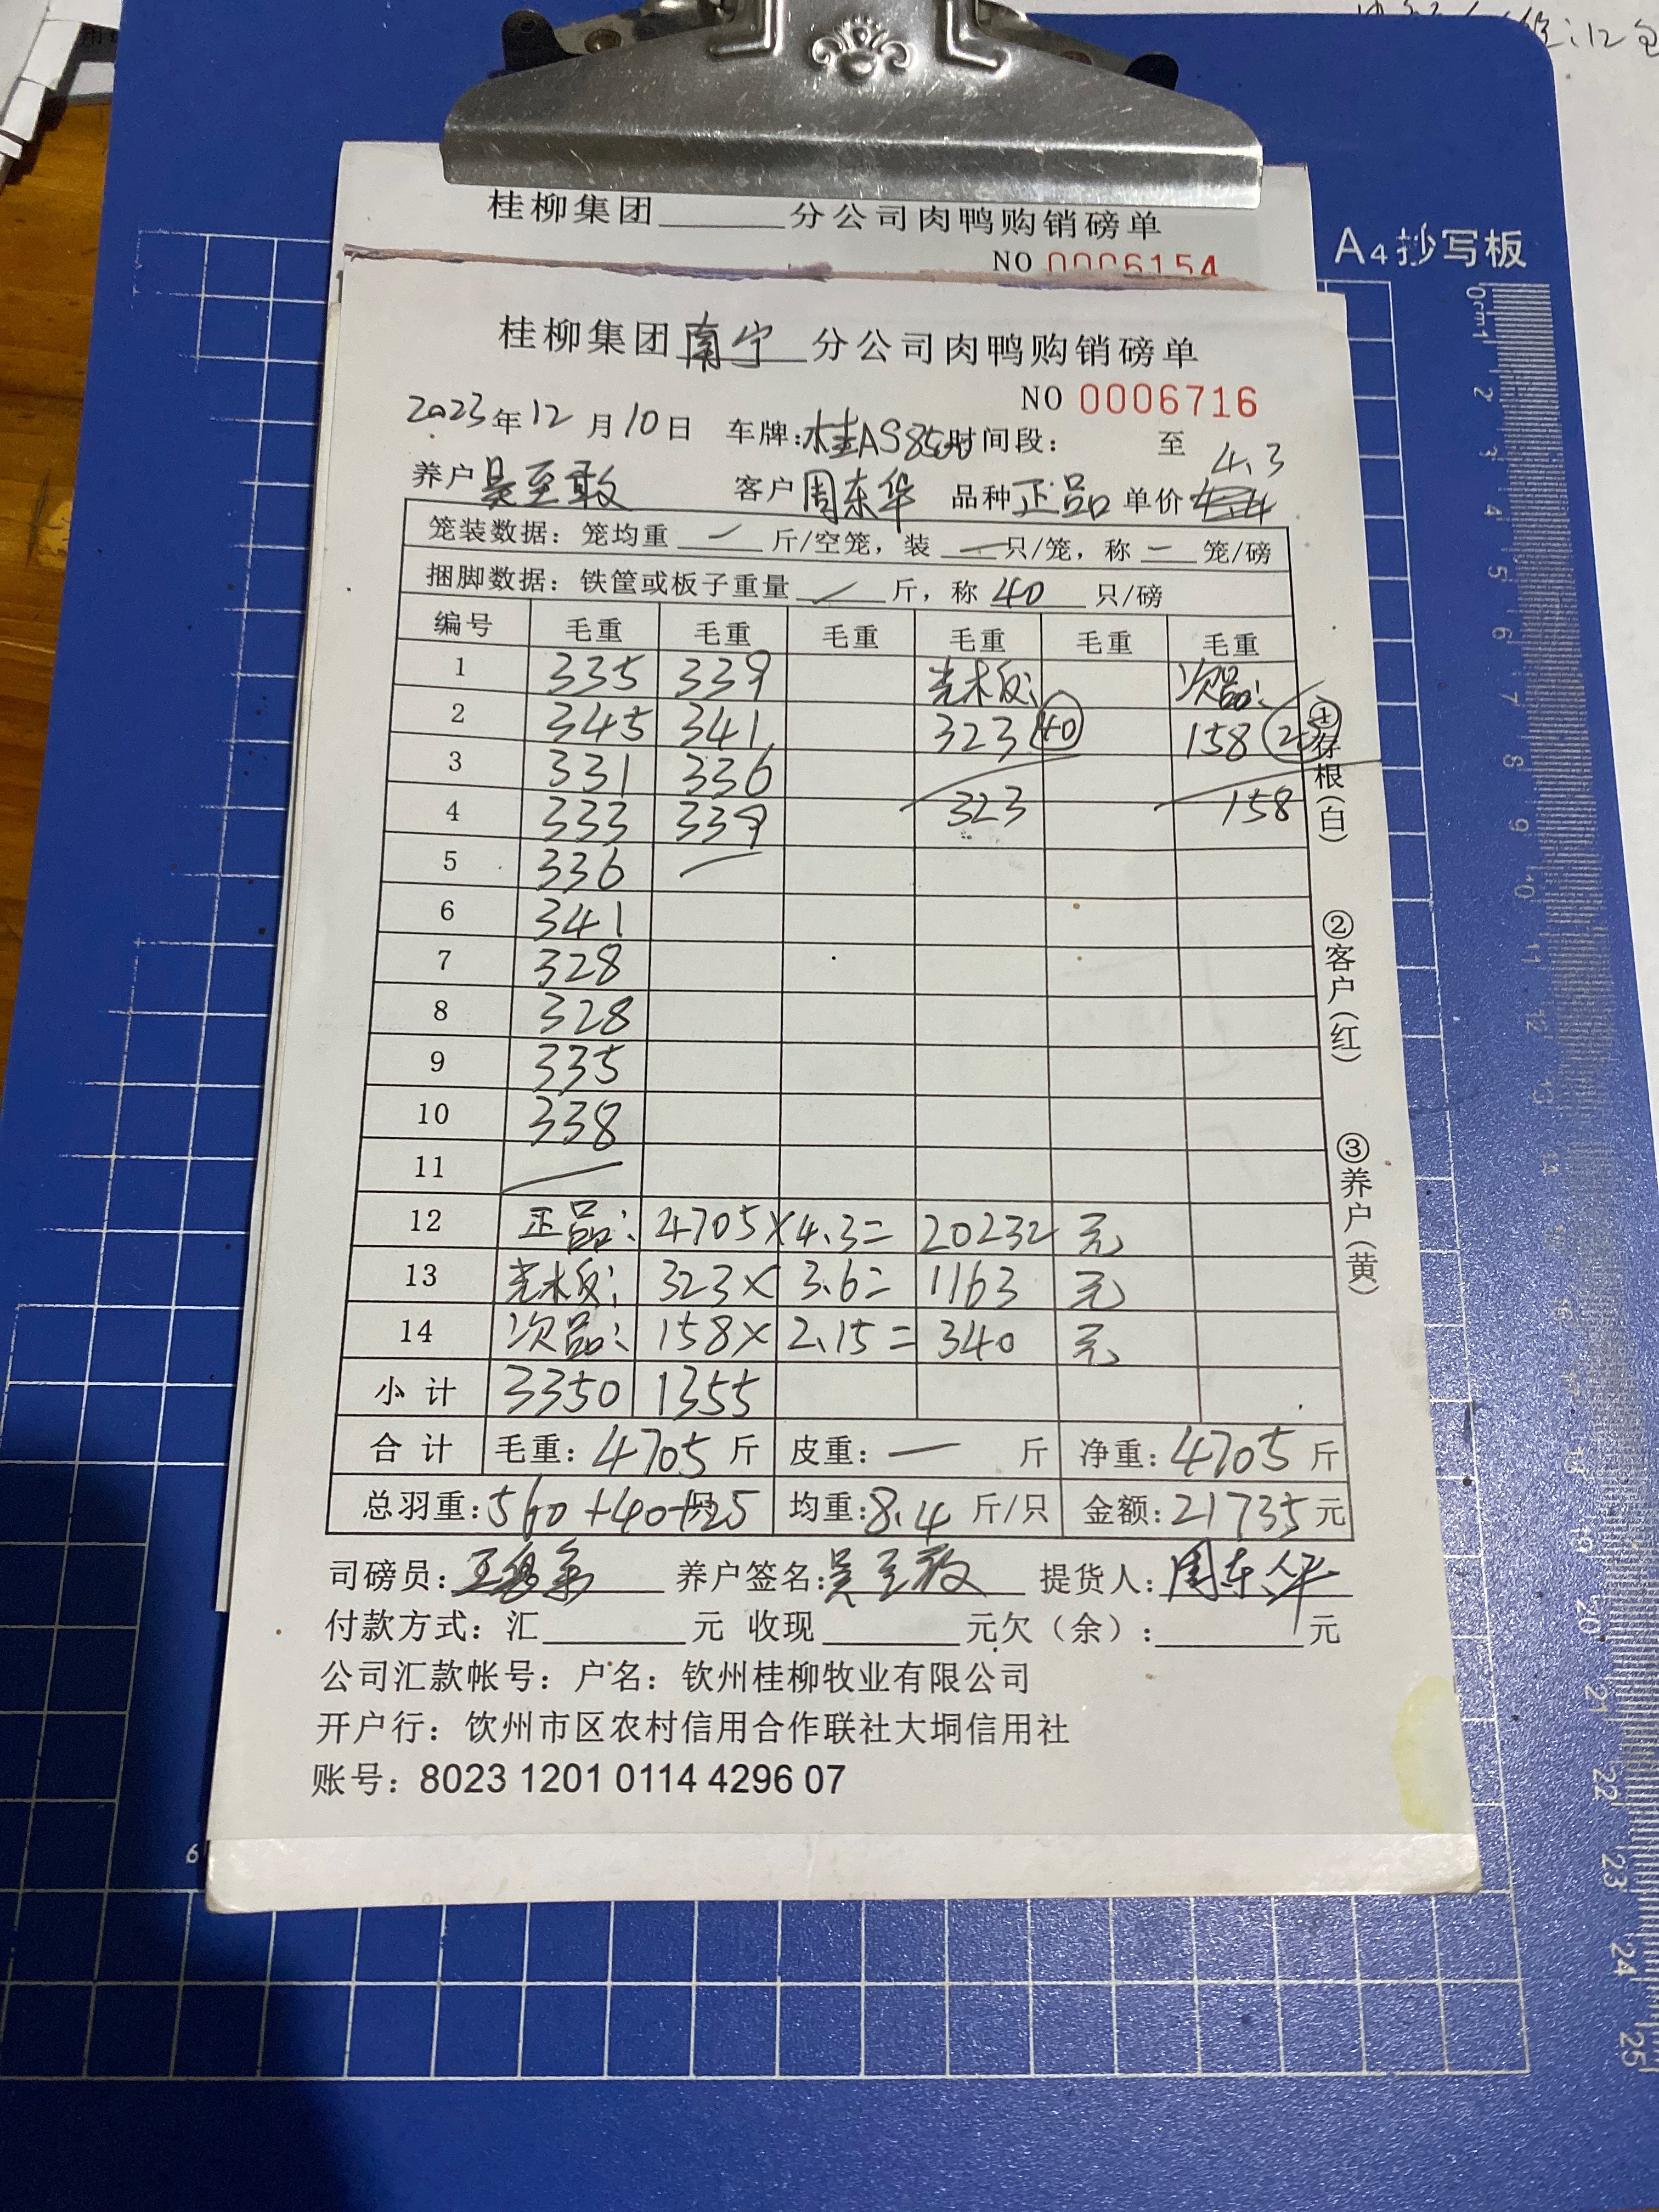 桂柳集团______分公司肉鸭购销磅单
NO 0006154
A4抄写板
桂柳集团南宁分公司肉鸭购销磅单
NO 0006716
2023年12月10日 车牌:桂AS85 时间段: 至
4.3
养户吴至敢 客户周东华 品种正品 单价
笼装数据: 笼均重 一 斤/空笼, 装 一 只/笼, 称 一 笼/磅
捆脚数据: 铁筐或板子重量 / 斤, 称 40 只/磅
编号 毛重 毛重 毛重 毛重 毛重 毛重
1 335 339 光木板: 次品:
2 345 341 323 40 158
3 331 336
4 333 339 323 158
5 336 /
6 341
7 328
8 328
9 335
10 338
11 /
12 正品: 4705× 4.3= 20232 元
13 光木板: 323× 3.6= 1163 元
14 次品: 158× 2.15= 340 元
小计 3350 1355
合计 毛重: 4705 斤 皮重: 一 斤 净重: 4705 斤
总羽重: 560+40+25 均重: 8.4 斤/只 金额: 21735元
司磅员: 养户签名: 吴至敢 提货人: 周东华
付款方式: 汇______元 收现______元欠(余):______元
公司汇款帐号: 户名: 钦州桂柳牧业有限公司
开户行: 饮州市区农村信用合作联社大垌信用社
账号: 8023 1201 0114 4296 07
①存根(白)
②客户(红)
③养户(黄)
0cm1 2 3 4 5 6 7 8 9 10 11 12 13 14 15 16 17 18 19 20 21 22 23 24 25
6